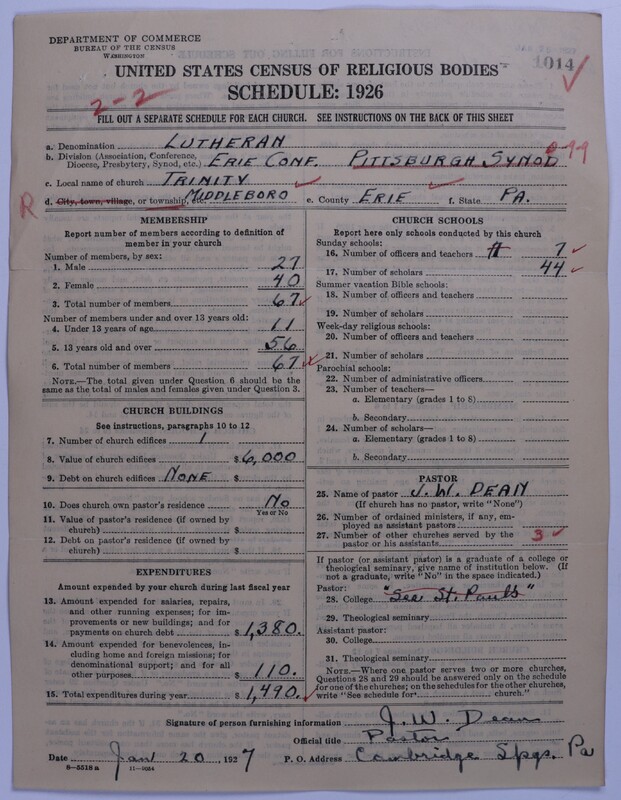 DEPARTMENT OF COMMERCE
BUREAU OF THE CENSUS
WASHINGTON
1014
UNITED STATES CENSUS OF RELIGIOUS BODIES
SCHEDULE: 1926
2-2
FILL OUT A SEPARATE SCHEDULE FOR EACH CHURCH. SEE INSTRUCTIONS ON THE BACK OF THIS SHEET
a. Denomination LUTHERAN
b. Division (Association, Conference, Diocese, Presbytery, Synod, etc.) ERIE CONF. PITTSBURGH SYNOD
c. Local name of church TRINITY
R d. City, town, village, or township, etc. MIDDLEBORO e. County ERIE f. State PA.
MEMBERSHIP
Report number of members according to definition of
member in your church
Number of members, by sex:
1. Male 27
2. Female 40
3. Total number of members 67
Number of members under and over 13 years old:
4. Under 13 years of age 11
5. 13 years old and over 56
6. Total number of members 67
NOTE.—The total given under Question 6 should be
same as the total of males and females given under Question 3.
CHURCH BUILDINGS
See instructions, paragraphs 10 to 12
7. Number of church edifices 1
8. Value of church edifices $ 6,000
9. Debt on church edifices NONE $
10. Does church own pastor's residence No
Yes or No
11. Value of pastor's residence (if owned by
church) $
12. Debt on pastor's residence (if owned by
church) $
EXPENDITURES
Amount expended by your church during last fiscal year
13. Amount expended for salaries, repairs,
and other running expenses; for im-
provements or new buildings; and for
payments on church debt $ 1,380.
14. Amount expended for benevolences, in-
cluding home and foreign missions; for
denominational support; and for all
other purposes $ 110.
15. Total expenditures during year $ 1,490.
CHURCH SCHOOLS
Report here only schools conducted by this church
Sunday schools:
16. Number of officers and teachers 7
17. Number of scholars 44
Summer vacation Bible schools:
18. Number of officers and teachers
19. Number of scholars
Week-day religious schools:
20. Number of officers and teachers
21. Number of scholars
Parochial schools:
22. Number of administrative officers
23. Number of teachers—
a. Elementary (grades 1 to 8)
b. Secondary
24. Number of scholars—
a. Elementary (grades 1 to 8)
b. Secondary
PASTOR
25. Name of pastor J. W. DEAN
(If church has no pastor, write "None")
26. Number of ordained ministers, if any, em-
ployed as assistant pastors
27. Number of other churches served by the
pastor or his assistants 3
If pastor (or assistant pastor) is a graduate of a college or
theological seminary, give name of institution below. (If
not a graduate, write "No" in the space indicated.)
Pastor:
28. College "See St. Pauls"
29. Theological seminary
Assistant pastor:
30. College
31. Theological seminary
NOTE.—Where one pastor serves two or more churches,
Questions 28 and 29 should be answered only on the schedule
for one of the churches; on the schedules for the other churches,
write "See schedule for church."
Signature of person furnishing information J. W. Dean
Official title Pastor
Date Jan 20, 1927 P. O. Address Cambridge Spgs. Pa
8-5518 a 11-9034